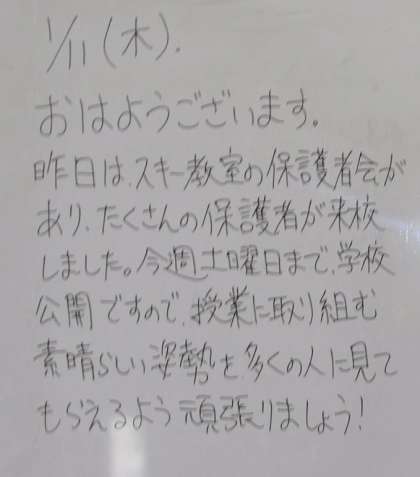 1/11(木).
おはようございます。
昨日は、スキー教室の保護者会が
あり、たくさんの保護者が来校
しました。今週土曜日まで、学校
公開ですので、授業に取り組む
素晴らしい姿勢を、多くの人に見て
もらえるよう頑張りましょう!